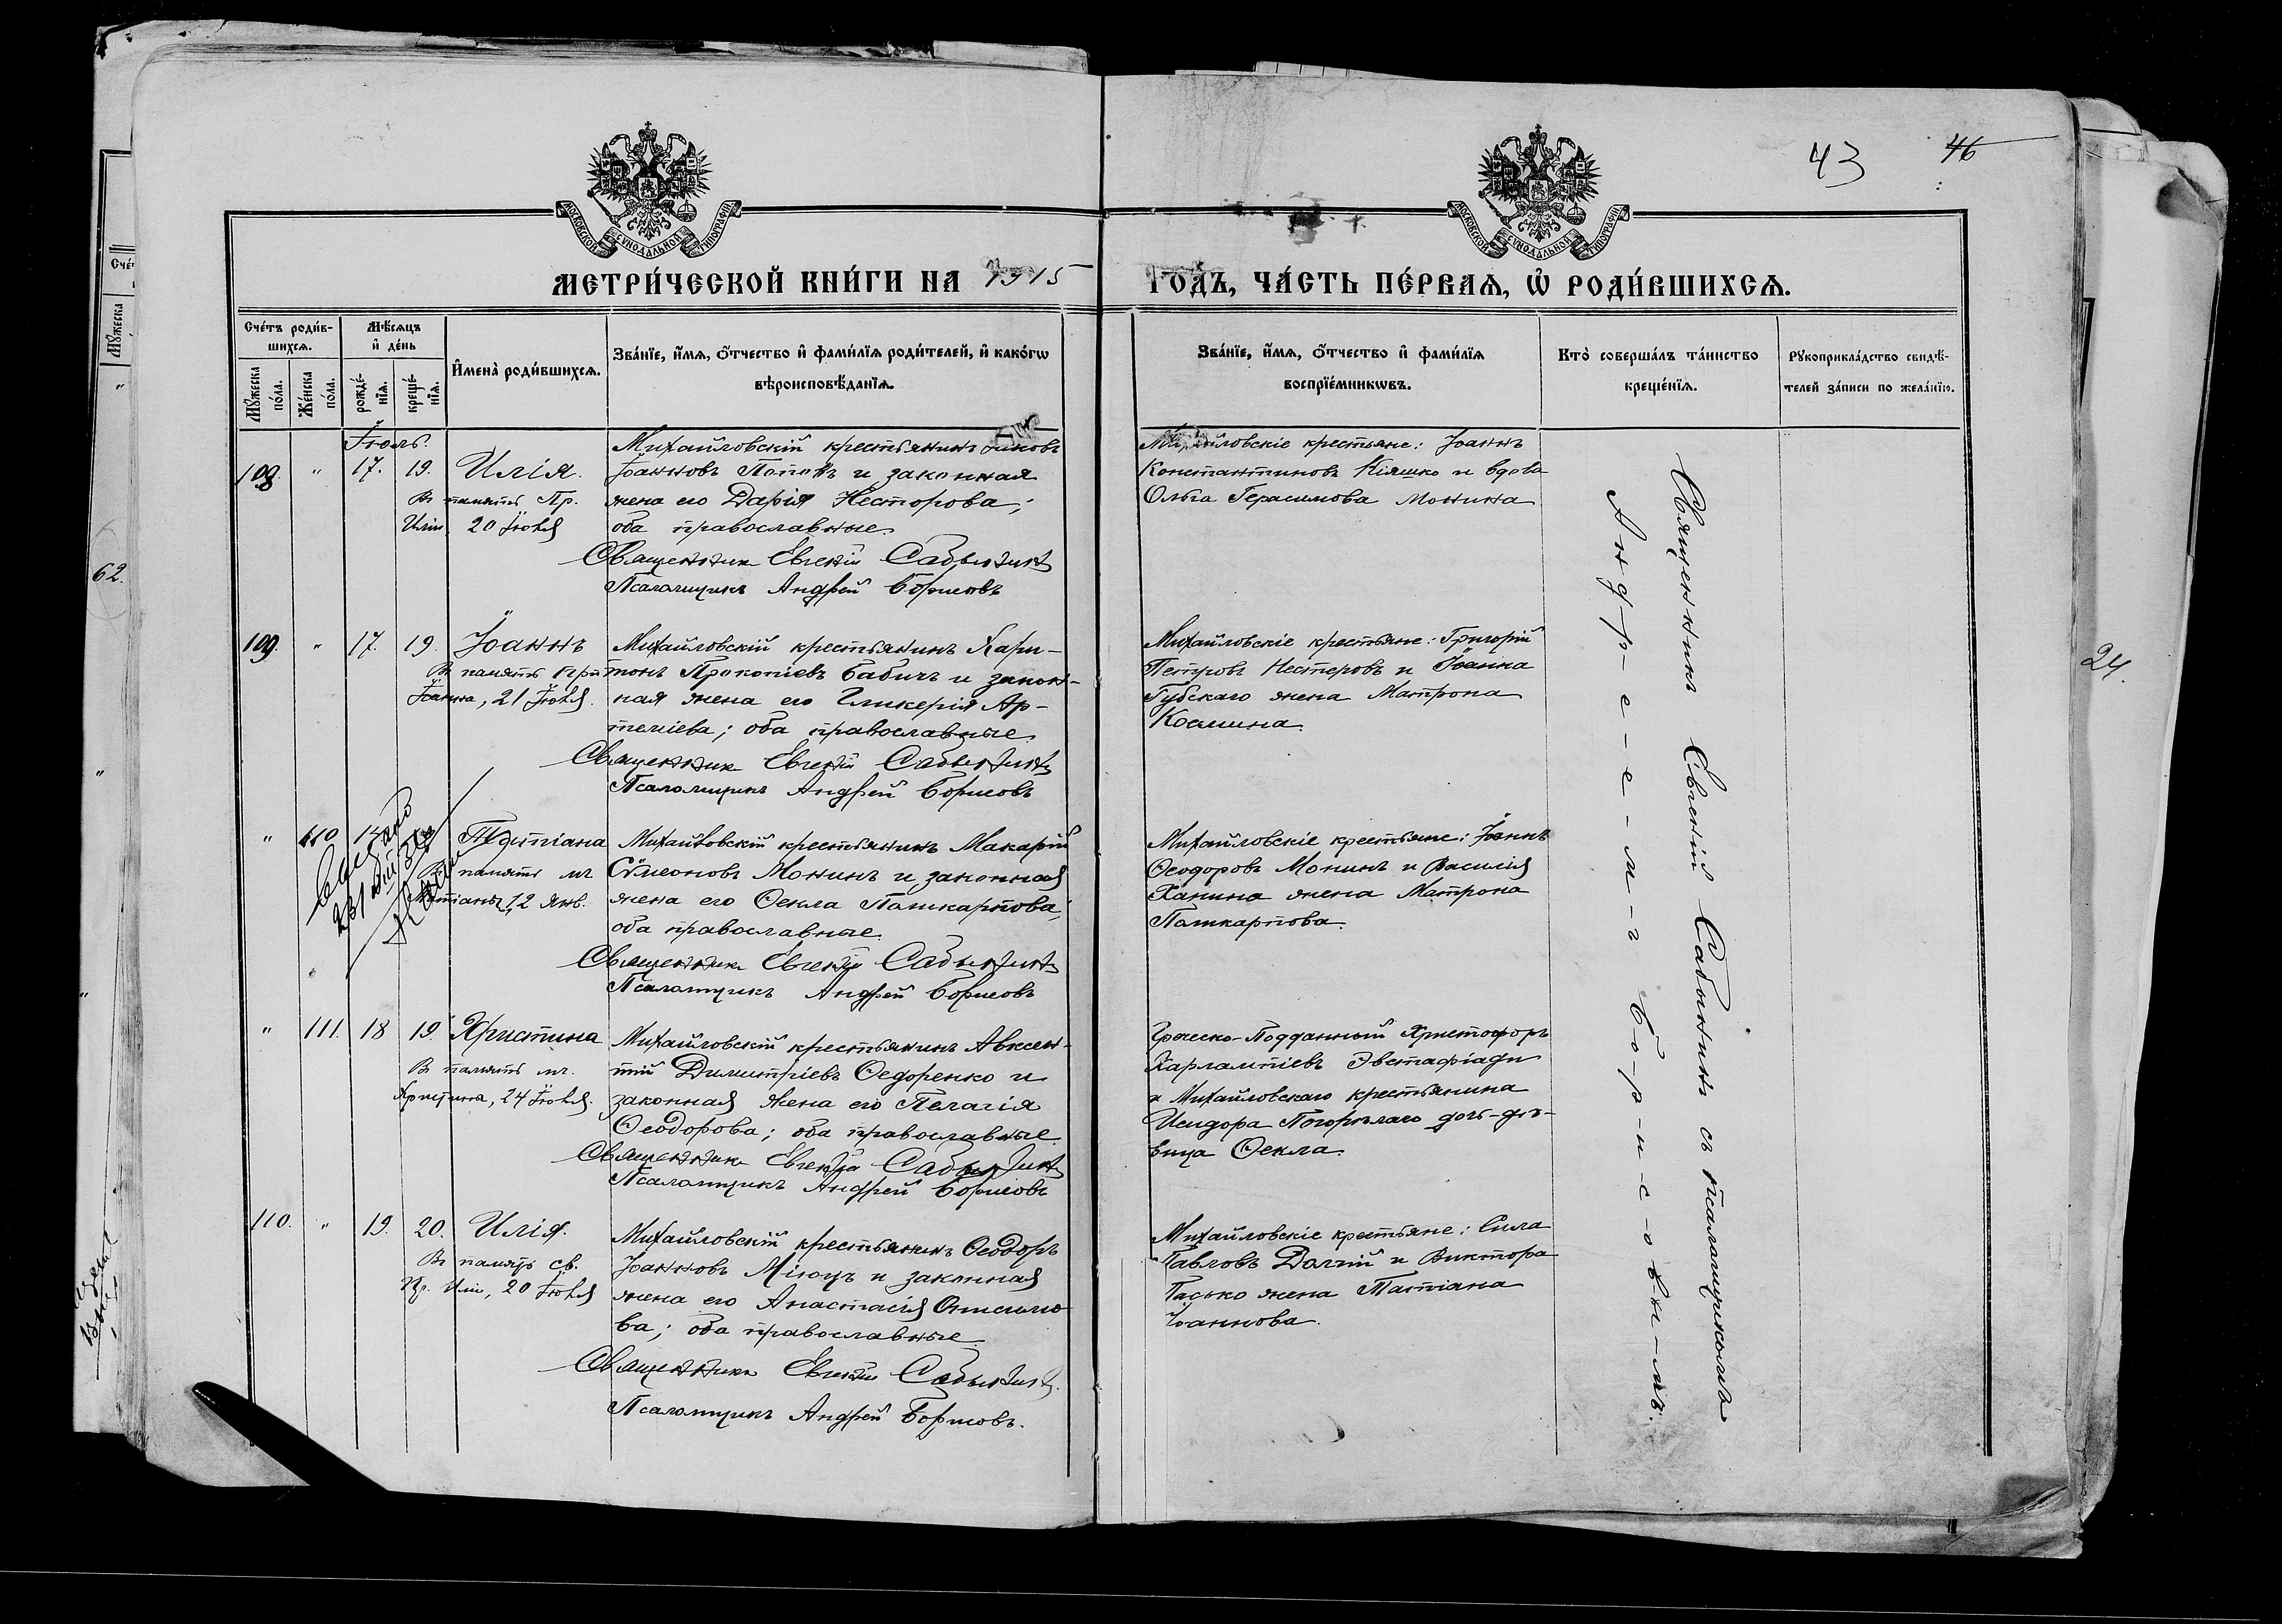 43 46
МОСКОВСКОЙ СУНОДАЛЬНОЙ ТИПОГРАФІИ
МОСКОВСКОЙ СУНОДАЛЬНОЙ ТИПОГРАФІИ
МЕТРИ́ЧЕСКОЙ КНИ́ГИ НА 1915 ГОДЪ, ЧА́СТЬ ПЕ́РВАѦ, Ѡ҆ РОДИ́ВШИХСѦ.
Сче́тъ роди́в-
шихсѧ.
Мꙋ́жеска по́ла.
Же́нска по́ла.
Мѣ́сѧцъ и҆ де́нь
рожде́-нїѧ.
креще́-нїѧ.
И҆мена̀ роди́вшихсѧ.
Зва́нїе, и҆́мѧ, ѻ҆́тчество и҆ фами́лїѧ роди́телей, и҆ како́гѡ
вѣроисповѣ́данїѧ.
Зва́нїе, и҆́мѧ, ѻ҆́тчество и҆ фами́лїѧ
воспрїе́мникѡвъ.
Кто̀ соверша́лъ та́инство
креще́нїѧ.
Рꙋкоприкла́дство свидѣ́-
телей за́писи по жела́нїю.
Іюль.
108. " 17. 19. Илія.
Въ память Пр.
Иліи 20 Іюля
Михайловскій крестьянинъ
Іоанновъ Поповъ и законная
жена его Дарія Несторова;
оба православные.
Священникъ Евгеній Сабынинъ
Псаломщикъ Андрей Борисовъ
Михайловскіе крестьяне: Іоаннъ
Константиновъ Кіяшко и вдова
Ольга Герасимова Монина
109. " 17. 19. Іоаннъ
Въ память
Іоанна, 21 Іюля.
Михайловскій крестьянинъ Хари-
тонъ Прокопіевъ Бабичъ и закон-
ная жена его Гликерія Ар-
теміева; оба православные.
Священникъ Евгеній Сабынинъ
Псаломщикъ Андрей Борисовъ
Михайловскіе крестьяне: Григорій
Петровъ Нестеровъ и Іоанна
Губскаго жена Матрона
Космина.
" 110 Татіана
память мц.
12 Янв.
Михайловскій крестьянинъ Макарій
Сѵмеоновъ Монинъ и законная
жена его Ѳекла Полікарпова;
оба православные.
Священникъ Евгеній Сабынинъ
Псаломщикъ Андрей Борисовъ
Михайловскіе крестьяне: Іоаннъ
Ѳеодоровъ Монинъ и Василія
Ханина жена Матрона
Поликарпова.
" 111. 18 19. Христина
Въ память мц.
Христины, 24 Іюля.
Михайловскій крестьянинъ Авксен-
тій Димитріевъ Ѳедоренко и
законная жена его Пелагія
Ѳеодорова; оба православные.
Священникъ Евгеній Сабынинъ
Псаломщикъ Андрей Борисовъ
Греческо-Подданный Христофоръ
Харлампіевъ Эвстафіади
и Михайловскаго крестьянина
Исидора Погорѣлаго дочь-дѣ-
вица Ѳекла.
110. " 19. 20. Илія.
Въ память св.
Пр. Иліи, 20 Іюля
Михайловскій крестьянинъ Ѳеодоръ
Іоанновъ и законная
жена его Анастасія Онисимо-
ва; оба православные.
Священникъ Евгеній Сабынинъ.
Псаломщикъ Андрей Борисовъ.
Михайловскіе крестьяне: Сила
Павловъ Долгій и Виктора
Гасько жена Татіана
Іоаннова.
Священникъ Евгеній Сабынинъ съ псаломщикомъ
Андр-е-е-м-ъ Б-о-р-и-с-о-в-ы-мъ.
62.
24.